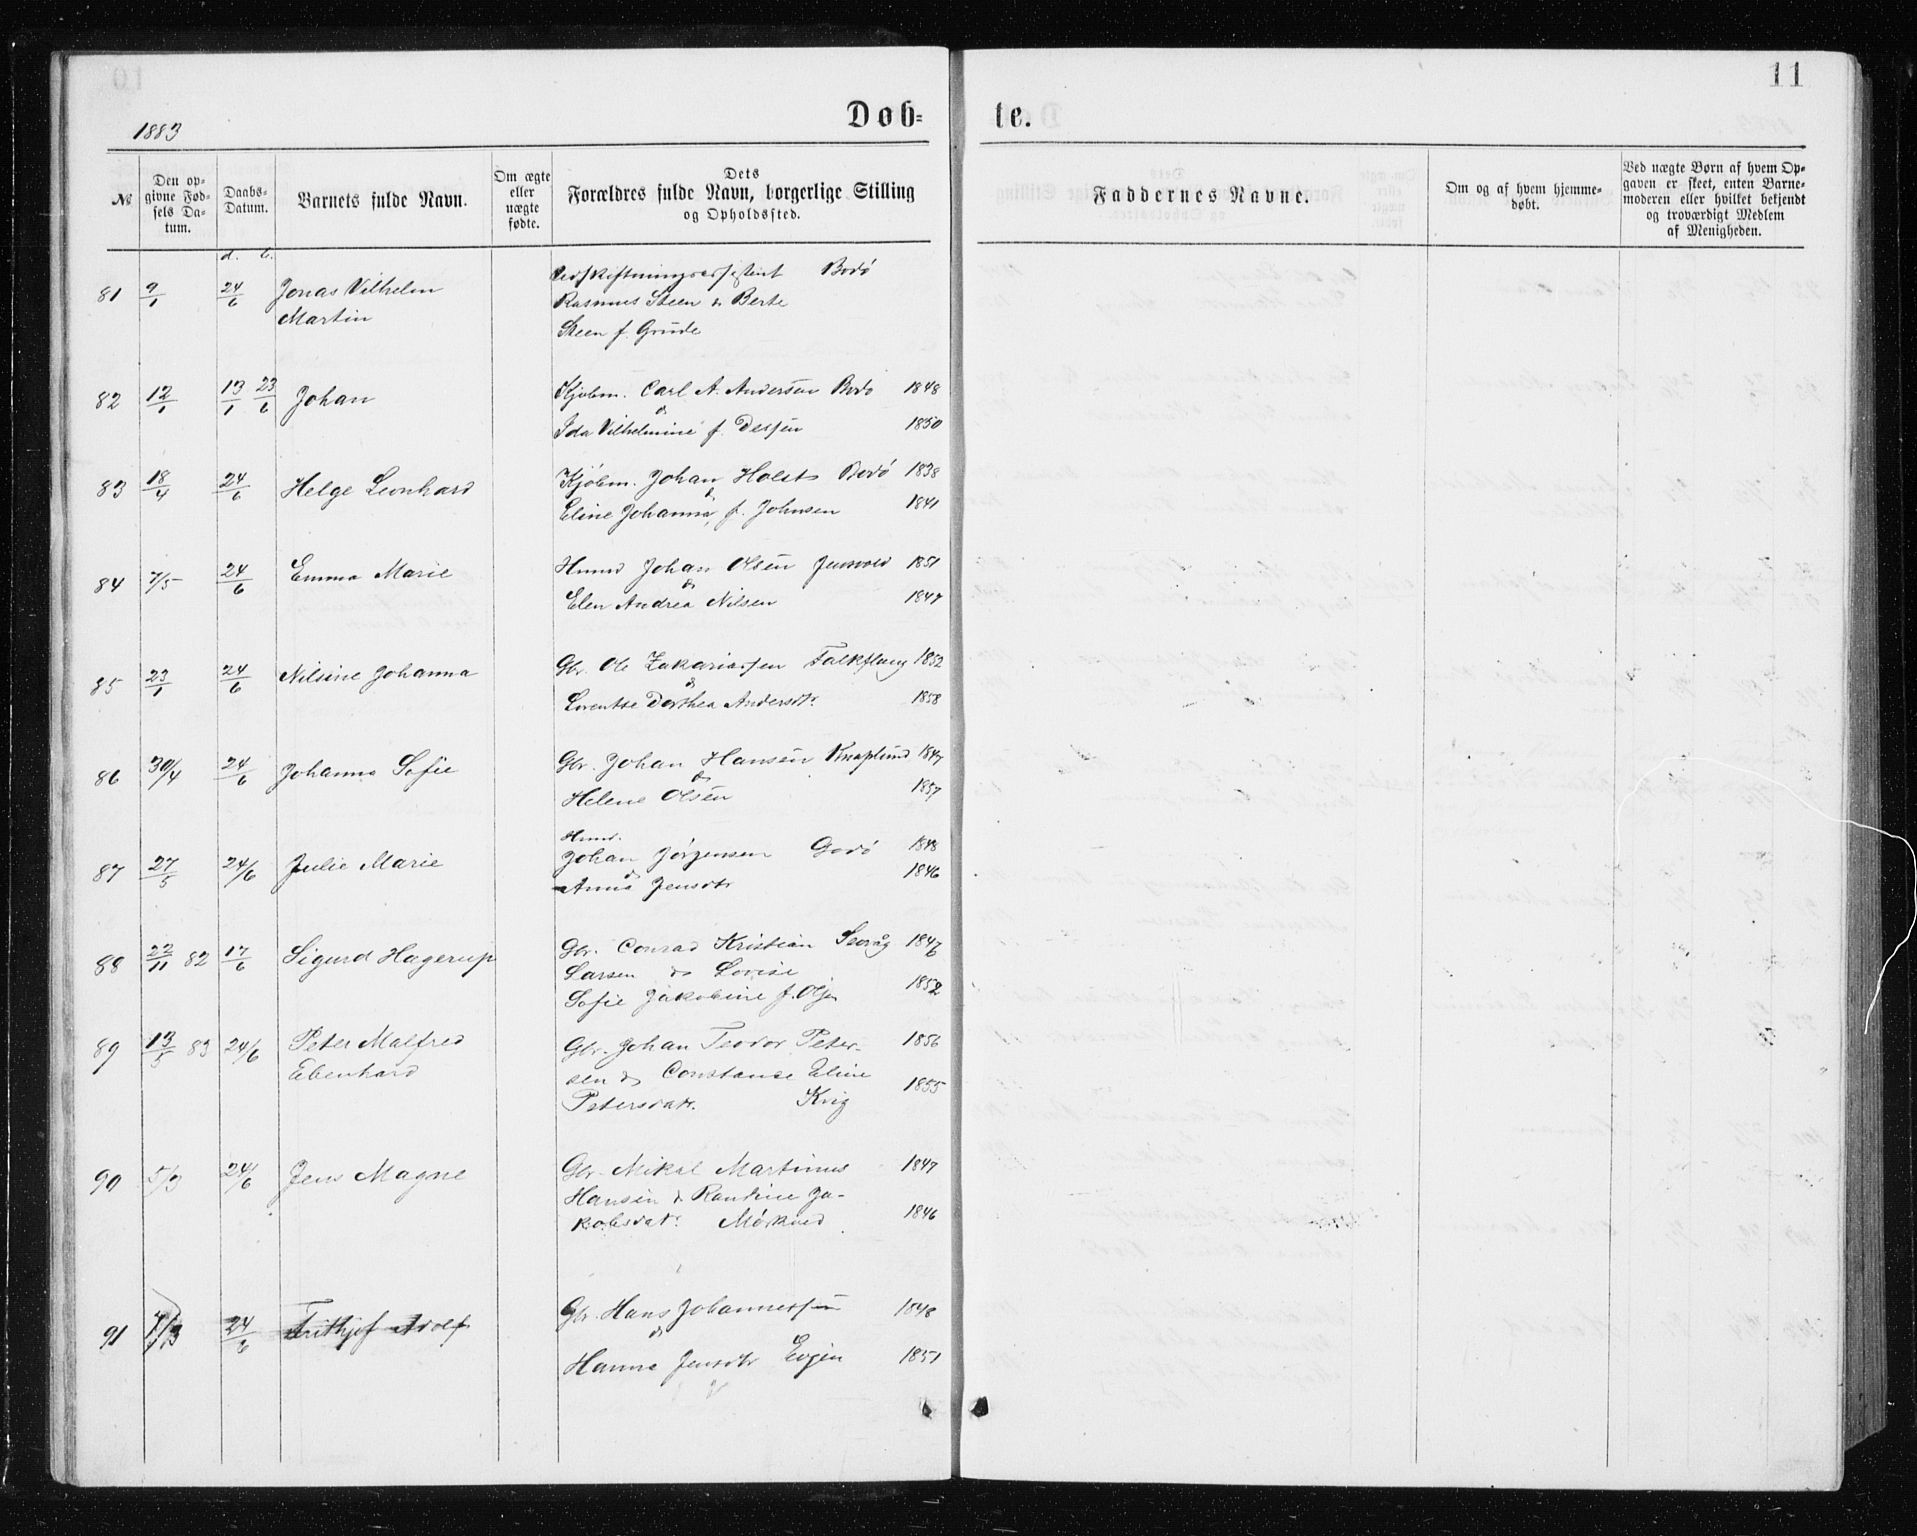 11
1883
Døb-
te.
№
Den op-
givne Fød-
sels Da-
tum.
Daabs-
Datum.
Barnets fulde Navn.
Om ægte
eller
uægte
fødte.
Dets
Forældres fulde Navn, borgerlige Stilling
og Opholdssted.
Faddernes Navne.
Om og af hvem hjemme-
døbt.
Ved uægte Børn af hvem Op-
gaven er skeet, enten Barne-
moderen eller hvilket bekjendt
og troværdigt Medlem
af Menigheden.
d. b.
81 9/1 24/6 Jonas Vilhelm
Martin
Udskiftningsassistent Bodø
Rasmus Steen & Berte
Steen f. Grude
82 12/1 13/1 23/6 Johan
Kjøbm. Carl A. Andersen Bodø 1848
&
Ida Vilhelmine f. Dessen 1850
83 18/4 24/6 Helge Leonhard
Kjöbm. Johan Holst Bodö 1838
&
Eline Johanna, f. Johnsen 1841
84 7/5 24/6 Emma Marie
Husmd Johan Olsen Jensvold 1851
&
Elen Andrea Nilsen 1847
85 23/1 24/6 Nilsine Johanna
Gbr. Ole Zakariassen Falkflaug 1852
&
Lorentse Dorthea Andersdtr. 1858
86 30/4 24/6 Johanna Sofie
Gbr. Johan Hansen Knaplund 1847
&
Helene Olsen 1857
87 27/5 24/6 Julie Marie
Husmd.
Johan Jörgensen Godö 1848
&
Anna Jensdtr 1846
88 22/11 82 17/6 Sigurd Hagerup
Gbr. Conrad Kristian Seivåg 1847
Larsen & Lovise
Sofie Jakobine f. 1852
89 13/5 83 24/6 Peter Malfred
Ebenhard
Gbr. Johan Teodor Peter- 1856
sen & Constance Eline
1855
Petersdatr. Kvig
90 5/3 24/6 Jens Magne
Gbr. Mikal Martinus 1847
Hansen & Randine Ja-
kobsdatr. Mörkved 1846
91 24/6 Fritjof Adolf
Gbr. Hans Johannessen 1848
&
Hanna Jensdtr Evjen 1851